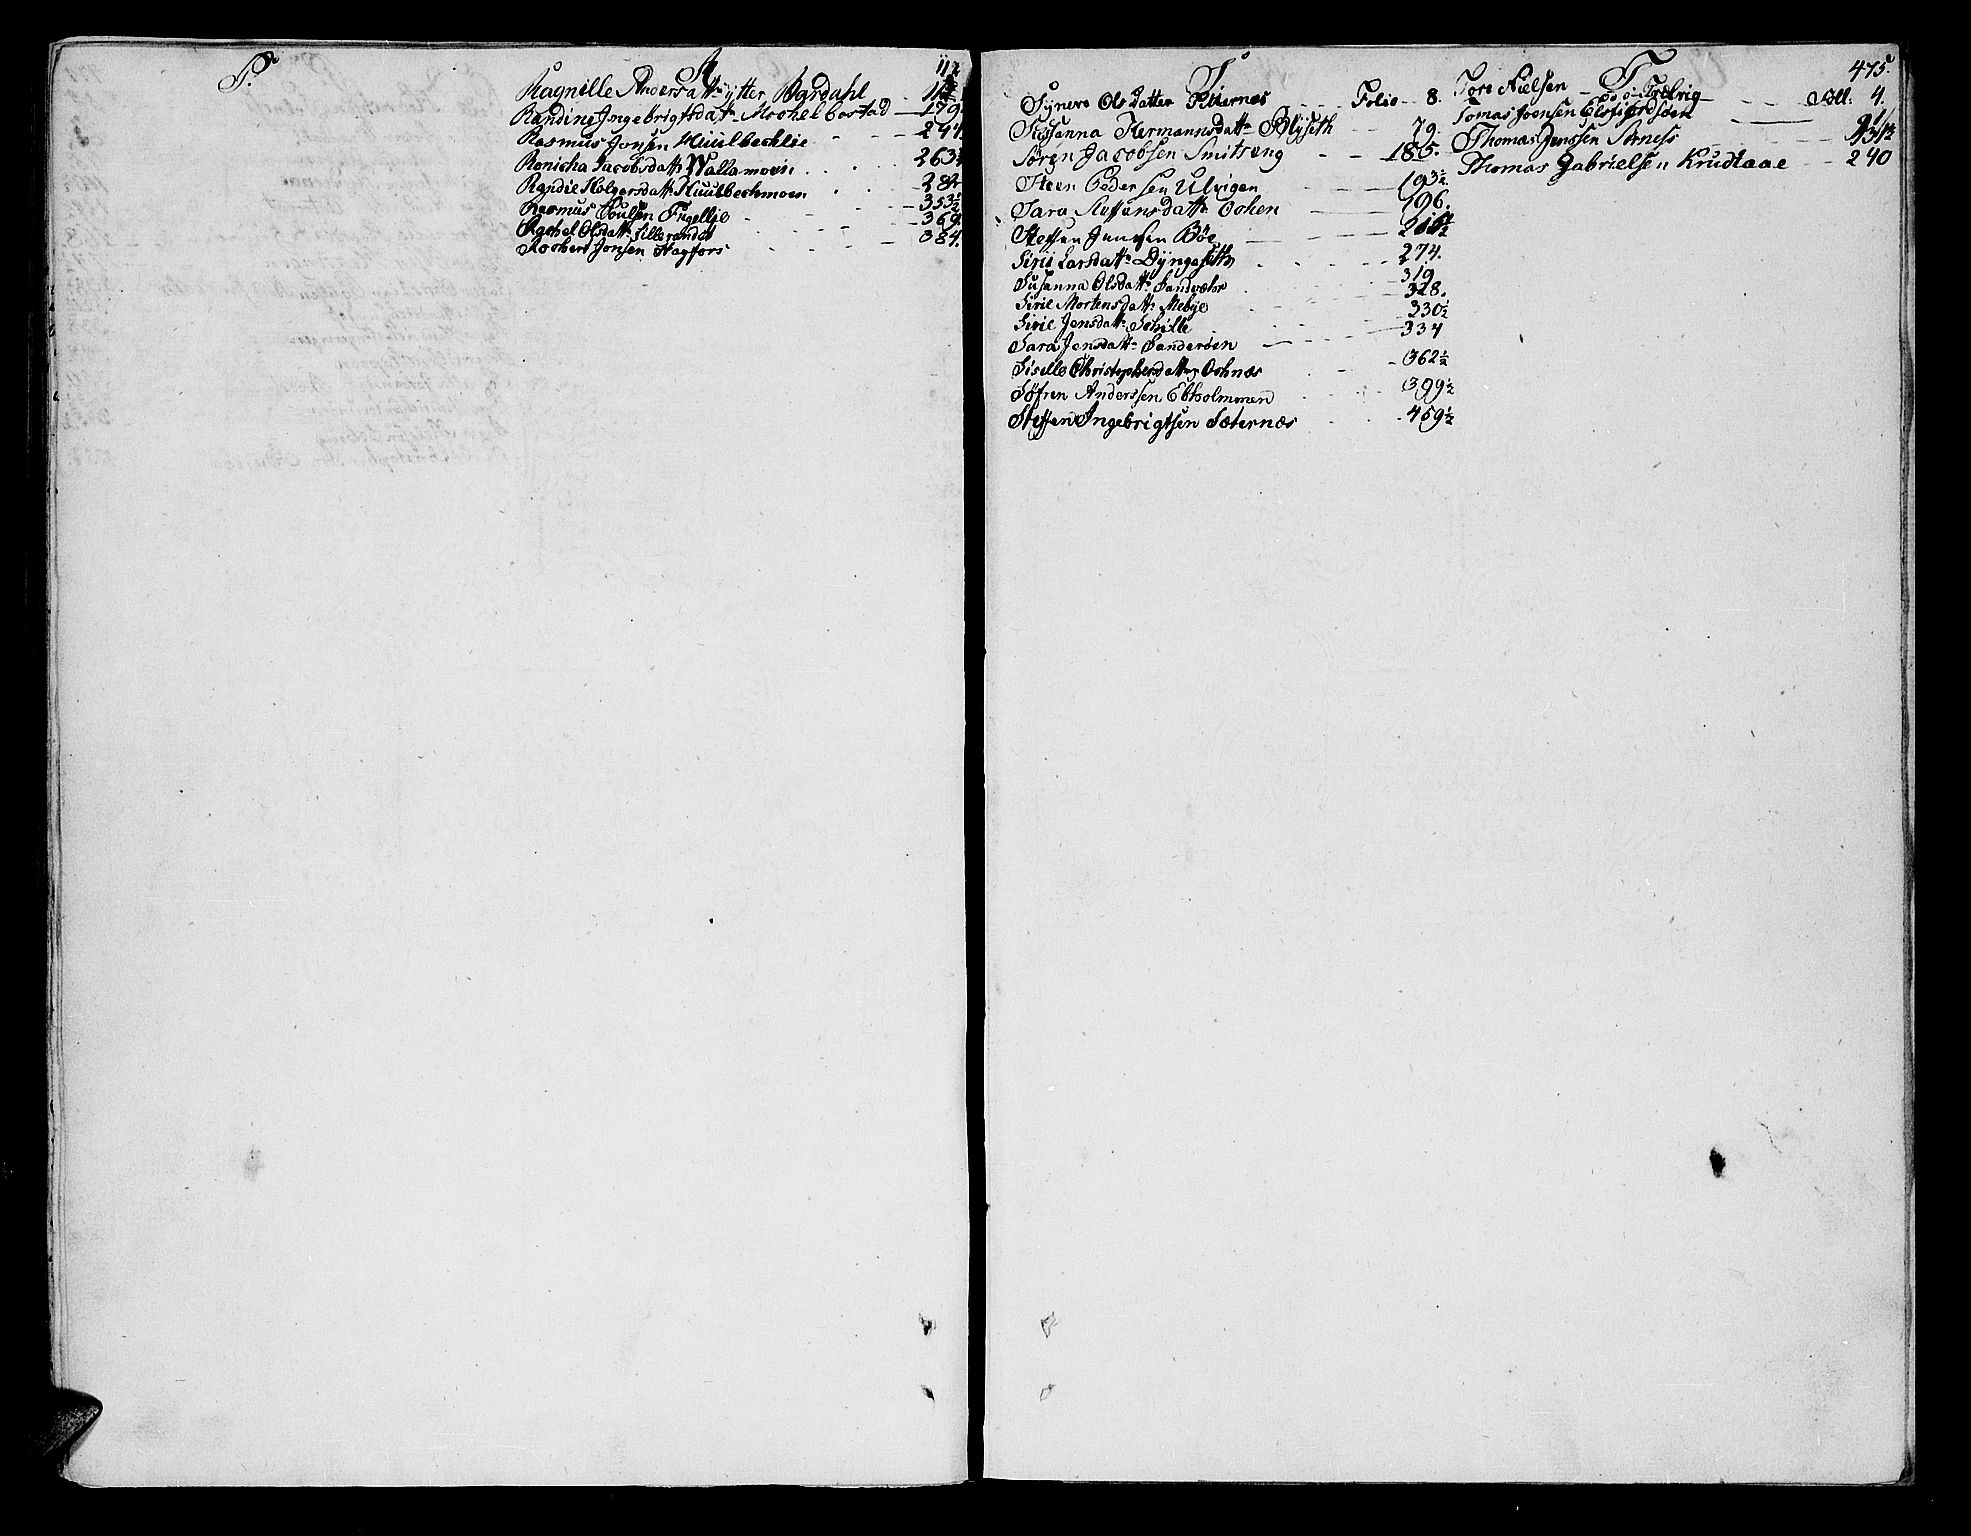 P.
R
Ragnille Andersdatt. ytter Bardahl 112
Randine Ingebrigtsdatt. Mochelbostad 179
Rasmus Jonsen Kuulbechlie 244
Ronicha Jacobsdatt. Wallamoen 263½
Randie Holgersdatt. Kuulbechmoen 282
Rasmus Poulsen Fugellie 353½
Rachel Olsdatt. Lille 369
Rochert Jonsen Hagfors 384.
S
Synere Ols datter Folio 8.
Susanna Hermannsdatt. Blyseth 79.
Søren Jacobsen Smitseng 185.
Steen Pedersen Ulvigen 193½
Sara Steffensdatt. Oohen 196.
Steffen Jensen Bøe
Sirii Larsdatt. Dyngeseth 274.
Susanna Olsdatt. Sandvæhr 319
Sirie Mortensdatt. Mebye 328.
Sirie Jonsdatt. 330½
Sara Jonsdatt. Sanderøen 334
Siselle Christophersdatt. Oohnæs 362½
Søfren Anderssen Ekholmmen 399½
Steffen Ingebrigtsen Sæternæs 459½
T
475.
Tore Nielsen foll: 4.
Tomas Joensen Elsfiordsøen 91
Thomas Jenssen Arness 131½
Thomas Gabrielsen Krudtaae 240